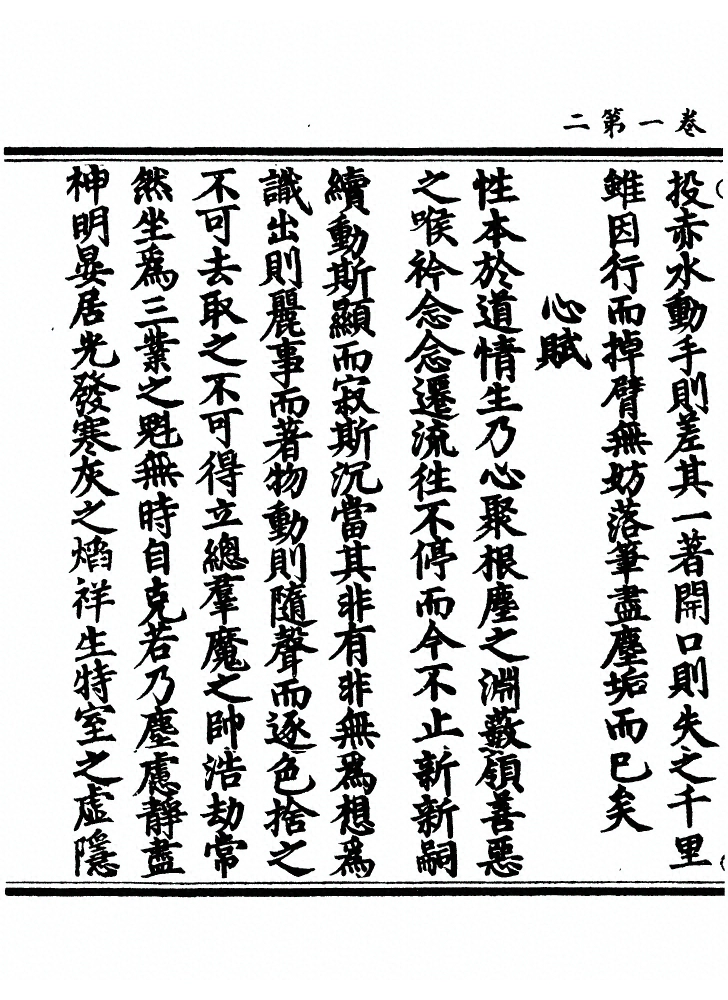 卷一第二
投赤水動手則差其一著開口則失之千里
雖因行而掉臂無妨落筆盡塵垢而已矣
心賦
性本於道情生乃心聚根塵之淵藪領善惡
之喉衿念念遷流徃不停而今不止新新嗣
續動斯顯而寂斯沉當其非有非無爲想爲
識出則麗事而著物動則隨聲而逐色捨之
不可去取之不可得立總羣魔之帥浩劫常
然坐爲三業之魁無時自克若乃塵慮靜盡
神明晏居光發寒灰之焰祥生特室之虛隱